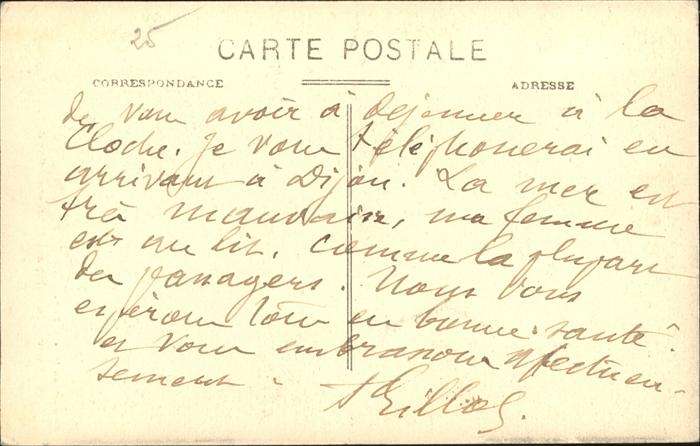 25
CARTE POSTALE
CORRESPONDANCE
ADRESSE
de vous avoir à déjeuner à la
Cloche. Je vous téléphonerai en
arrivant à Dijon. La mer est
très mauvaise, ma femme
est au lit, comme la plupart
des passagers. Nous vous
espérons tous en bonne santé
et vous embrassons affectueu-
sement -